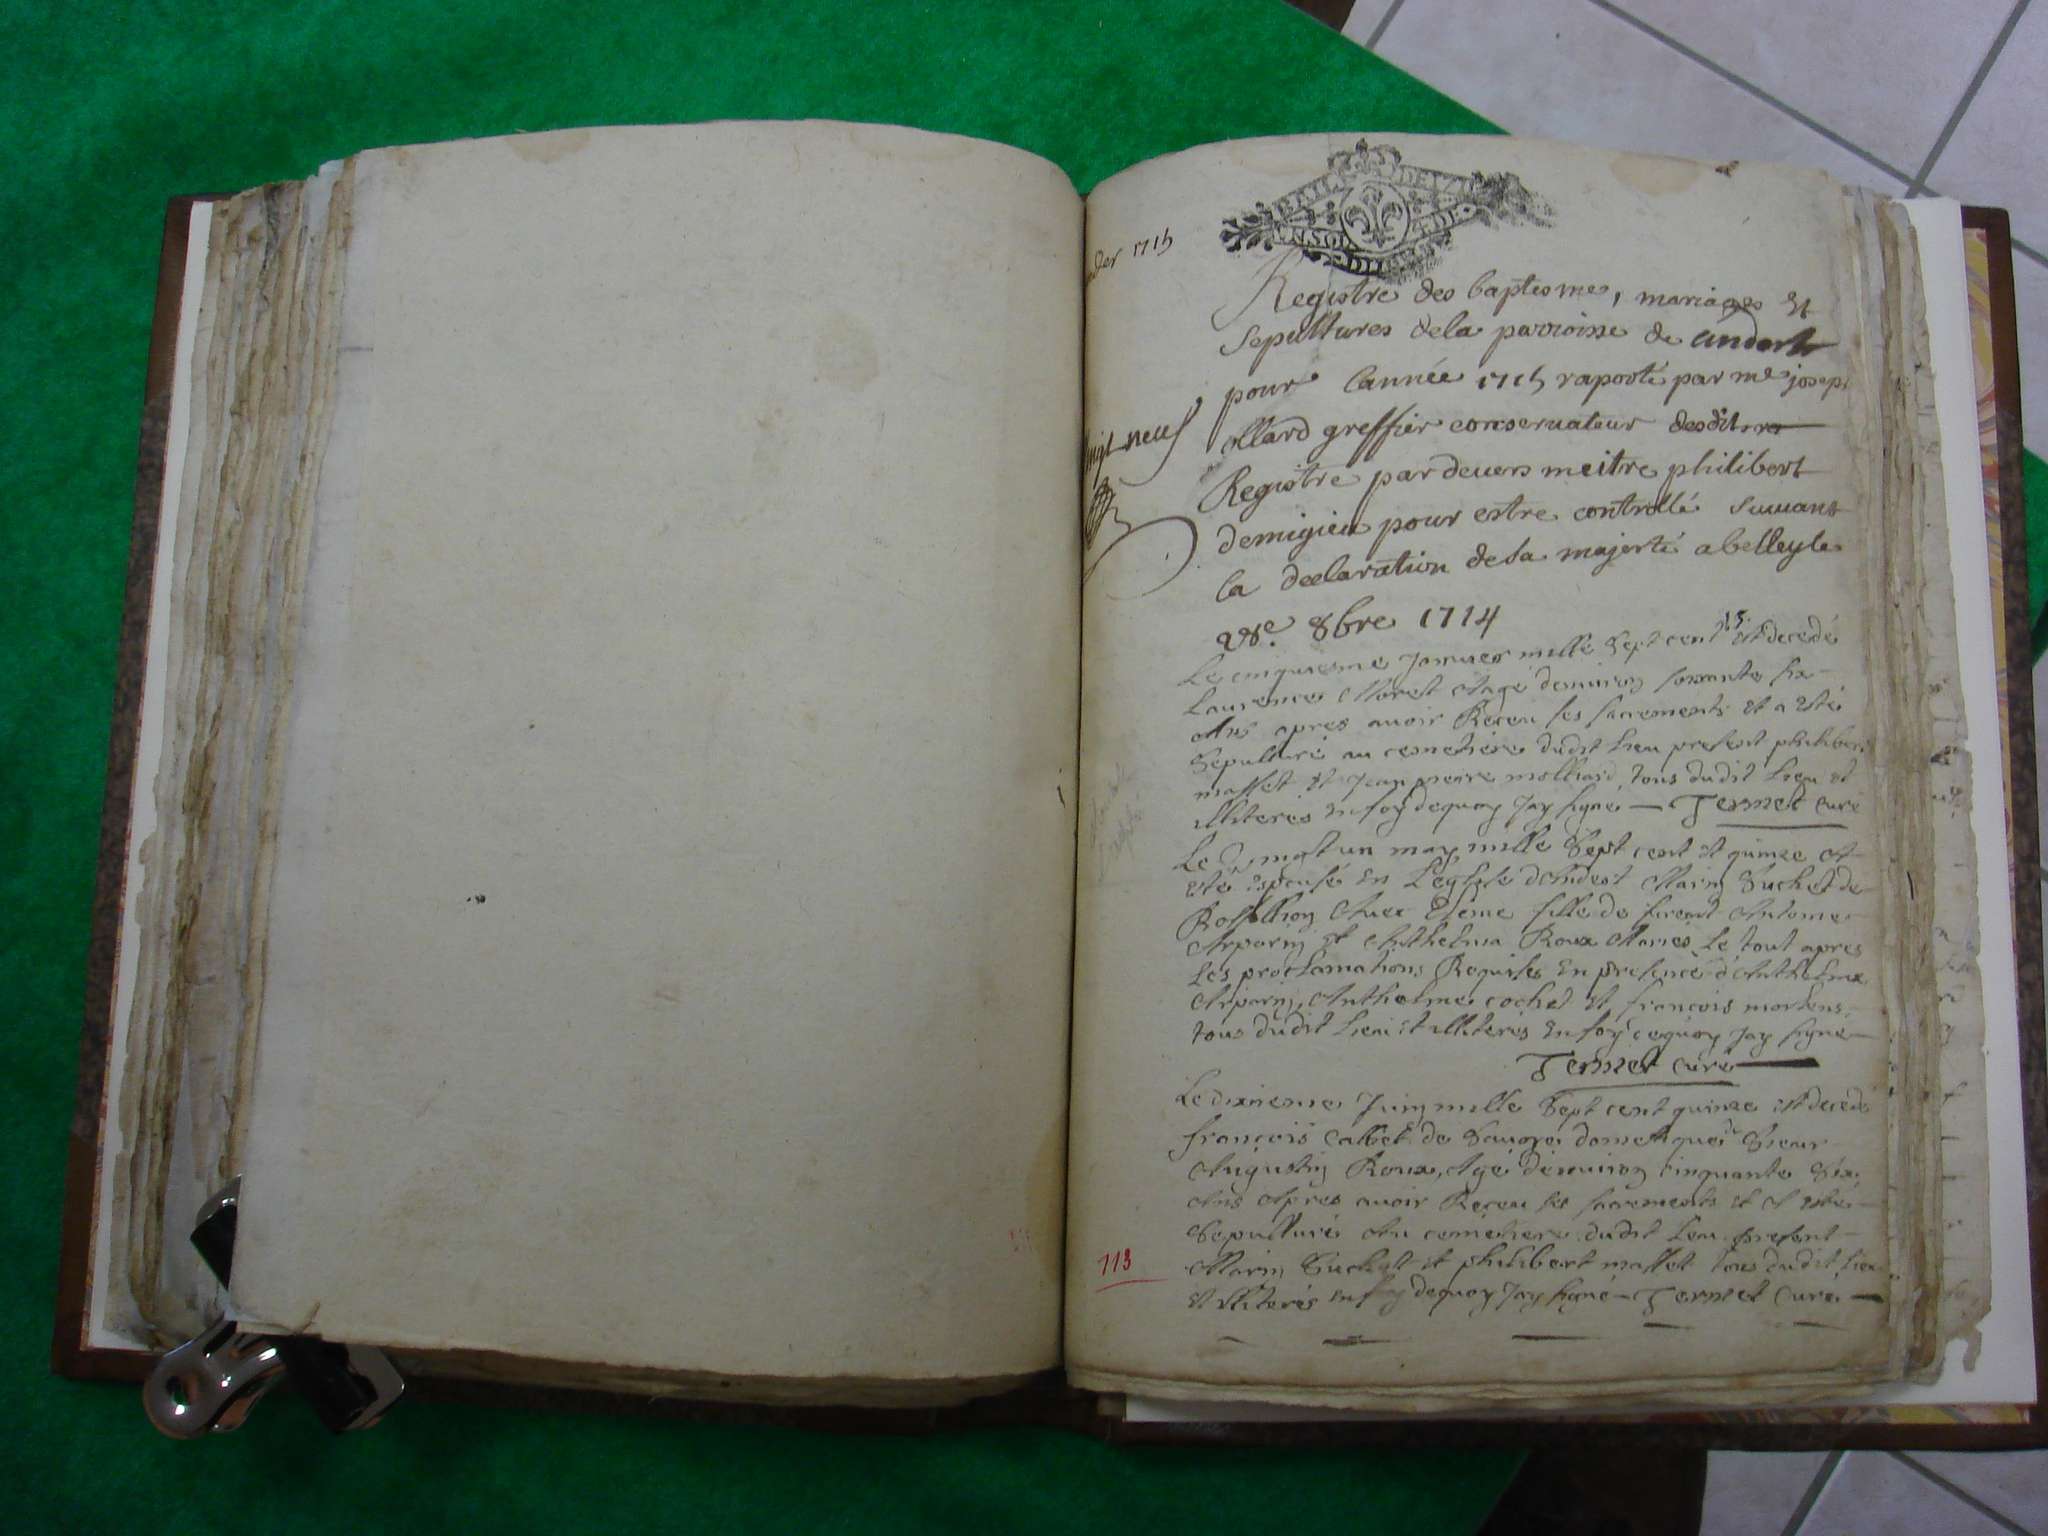 1715
Registre des baptesmes, mariages et
Sepultures dela parroisse de andert
pour lannée 1715 raporté par me joseph
ollard greffier conseruateur desdits
Registre pardeuers meitre philibert
demigieu pour estre controllé suiuant
la declaration desa majesté abelley le
28e 8bre 1714
vingt neuf
Le cinquiesme Januier mille Sept cent 15 est decedé
Laurence Moret Agé denuiron soixante six
Ans apres auoir Receu ses sacrements et a esté
Sepulturé au cemetiere dudit Lieu present philibert
masset et Jean pierre molliard tous dudit Lieu et
illiterés en foy dequoy Jay signé — Ternet Curé
Le vingt un may mille Sept cent et quinze At
esté espousé en Leglise dAndert Marin Suchet de
Rossillion Auec fille de Antoine
Arparin et Anthelma Roux Mariés Le tout apres
Les proclamations Requises en presence dAnthelme
Arparin, Anthelme cochet et françois martens
tous dudit Lieu et illiterés en foy cequoy Jay signe
Ternet curé
Le dixieme Juin mille Sept cent quinze est decedé
françois Callet de Sauoye domestique Sieur
Augustin Roux, Agé denuiron cinquante Six
Ans Apres auoir Receu ses sacrements et A esté
Sepulturé Au cemetiere dudit Lieu present
Marin Suchet et philibert masset tous dudit Lieu
et illiterés en foy dequoy Jay signé — Ternet Curé
113